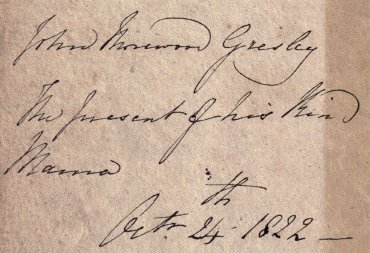 John Morewood Gresley
The present of his Kind
Mama
Octr. 24th 1822 —